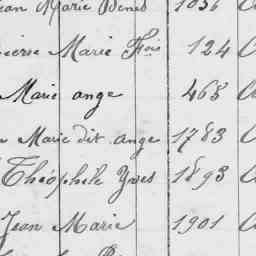 ean Marie Denis 1036
ierre Marie Fois 124
Marie ange 468
Marie dit ange 1783
Théophile Yves 1893
Jean Marie 1901